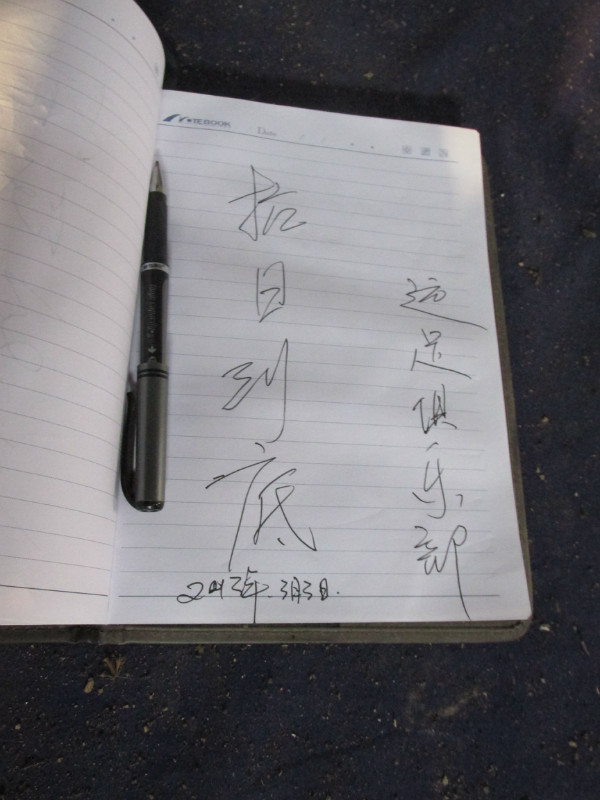 NOTEBOOK
Date / /
远足俱乐部
抗日到底
2013年.3月3日.